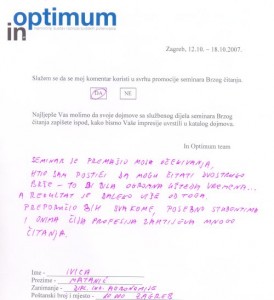 inoptimum
Zagreb, 12.10. – 18.10.2007.
Slažem se da se moj komentar koristi u svrhu promocije seminara Brzog čitanja.
DA NE
Najljepše Vas molimo da svoje dojmove sa službenog dijela seminara Brzog
čitanja zapišete ispod, kako bismo Vaše impresije uvrstili u katalog dojmova.
In Optimum team
SEMINAR JE PREMAŠIO MOJA OČEKIVANJA,
HTIO SAM POSTIĆI DA MOGU ČITATI DVOSTRUKO
BRŽE – TO BI BILA OGROMNA UŠTEDA VREMENA...
A REZULTAT JE DALEKO VEĆI OD TOGA.
PREPORUČIO BIH SVAKOME, POSEBNO STUDENTIMA
I ONIMA ČIJA PROFESIJA ZAHTIJEVA MNOGO
ČITANJA.
Ime - IVICA
Prezime - MATANIĆ
Zanimanje - DIPL. ING. AGRONOMIJE
Poštanski broj i mjesto - 10 000 ZAGREB